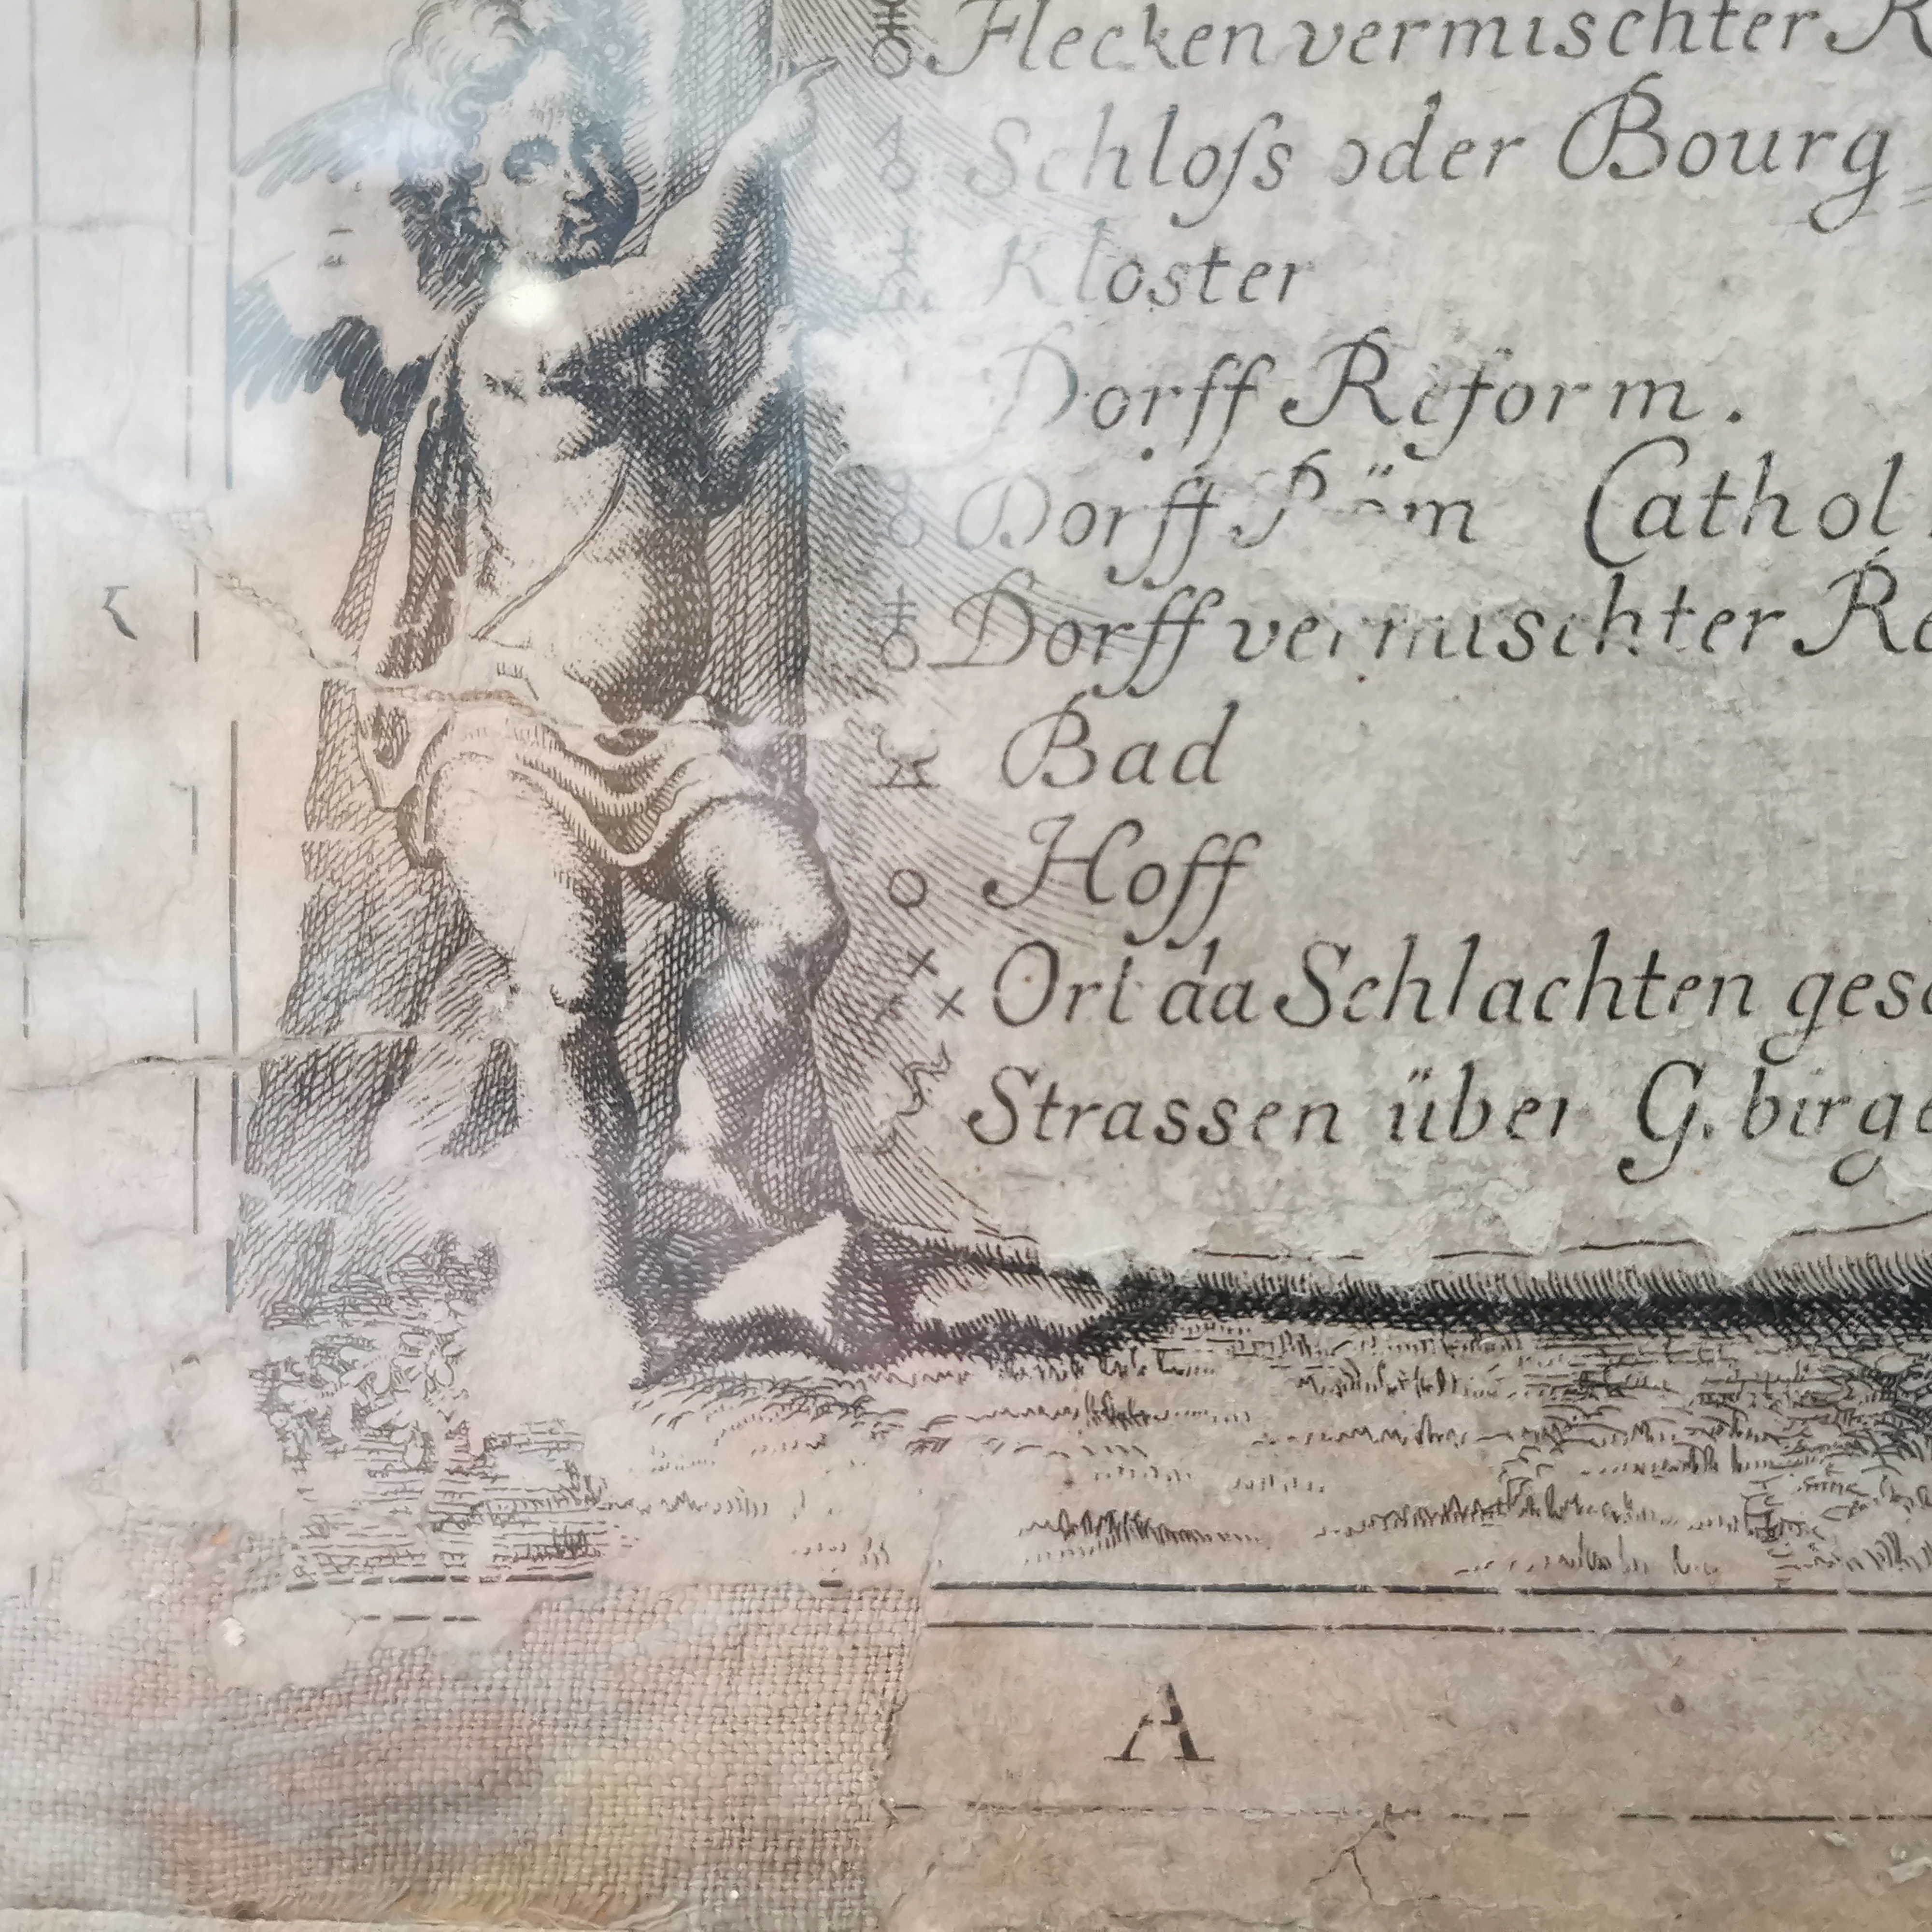 Flecken vermischter R
Schloſs oder Bourg
Kloster
Dorff Reform.
Dorff Röm Cathol.
Dorff vermischter Re
Bad
Hoff
Ort da Schlachten gesc
Strassen über Gebirge
A